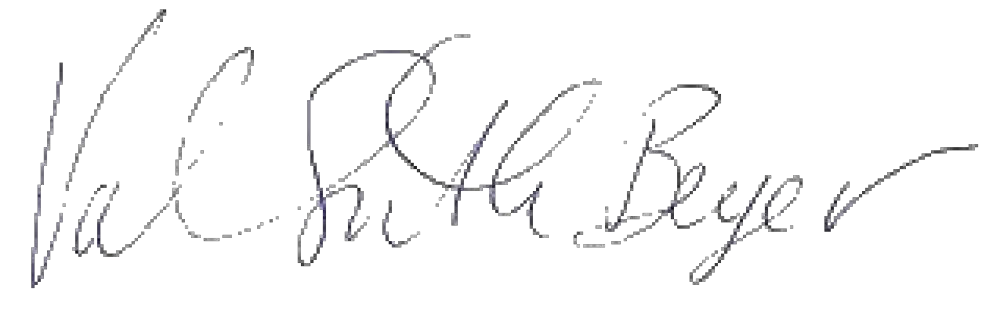 Val Smith Beyer